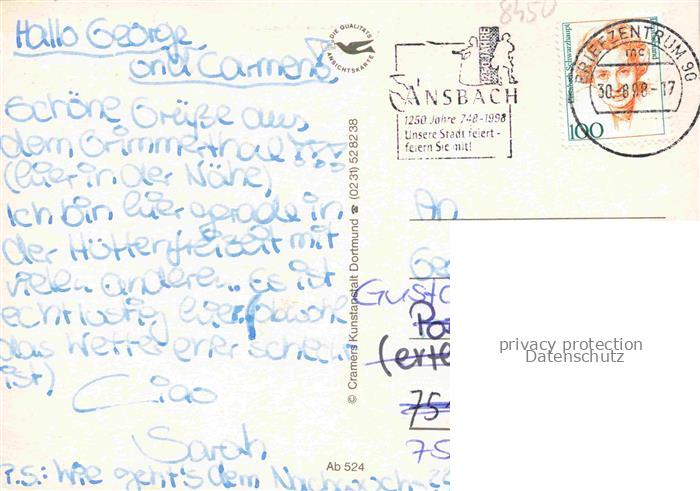 Hallo George
und Carmen!
Schöne Grüße aus
dem Grimmerthal!!!
(hier in der Nähe)
Ich bin hier gerade in
der Hüttenfreizeit mit
vielen anderen. Es ist
echt lustig hier (obwohl
das Wetter eher schlecht
ist)
Ciao
Sarah
P.S.: Wie geht's dem Nachwuchs??
DIE QUALITÄTS
ANSICHTSKARTE
© Cramers Kunstanstalt Dortmund ☎ (0231) 528238
Ab 524
8450
ANSBACH
1250 Jahre 748-1998
Unsere Stadt feiert -
feiern Sie mit!
BRIEFZENTRUM 90
30.-8.98-17
Elisabeth Schwarzhaupt
100
An
Ge
Gusta
Po
(erte
75
75
privacy protection
Datenschutz